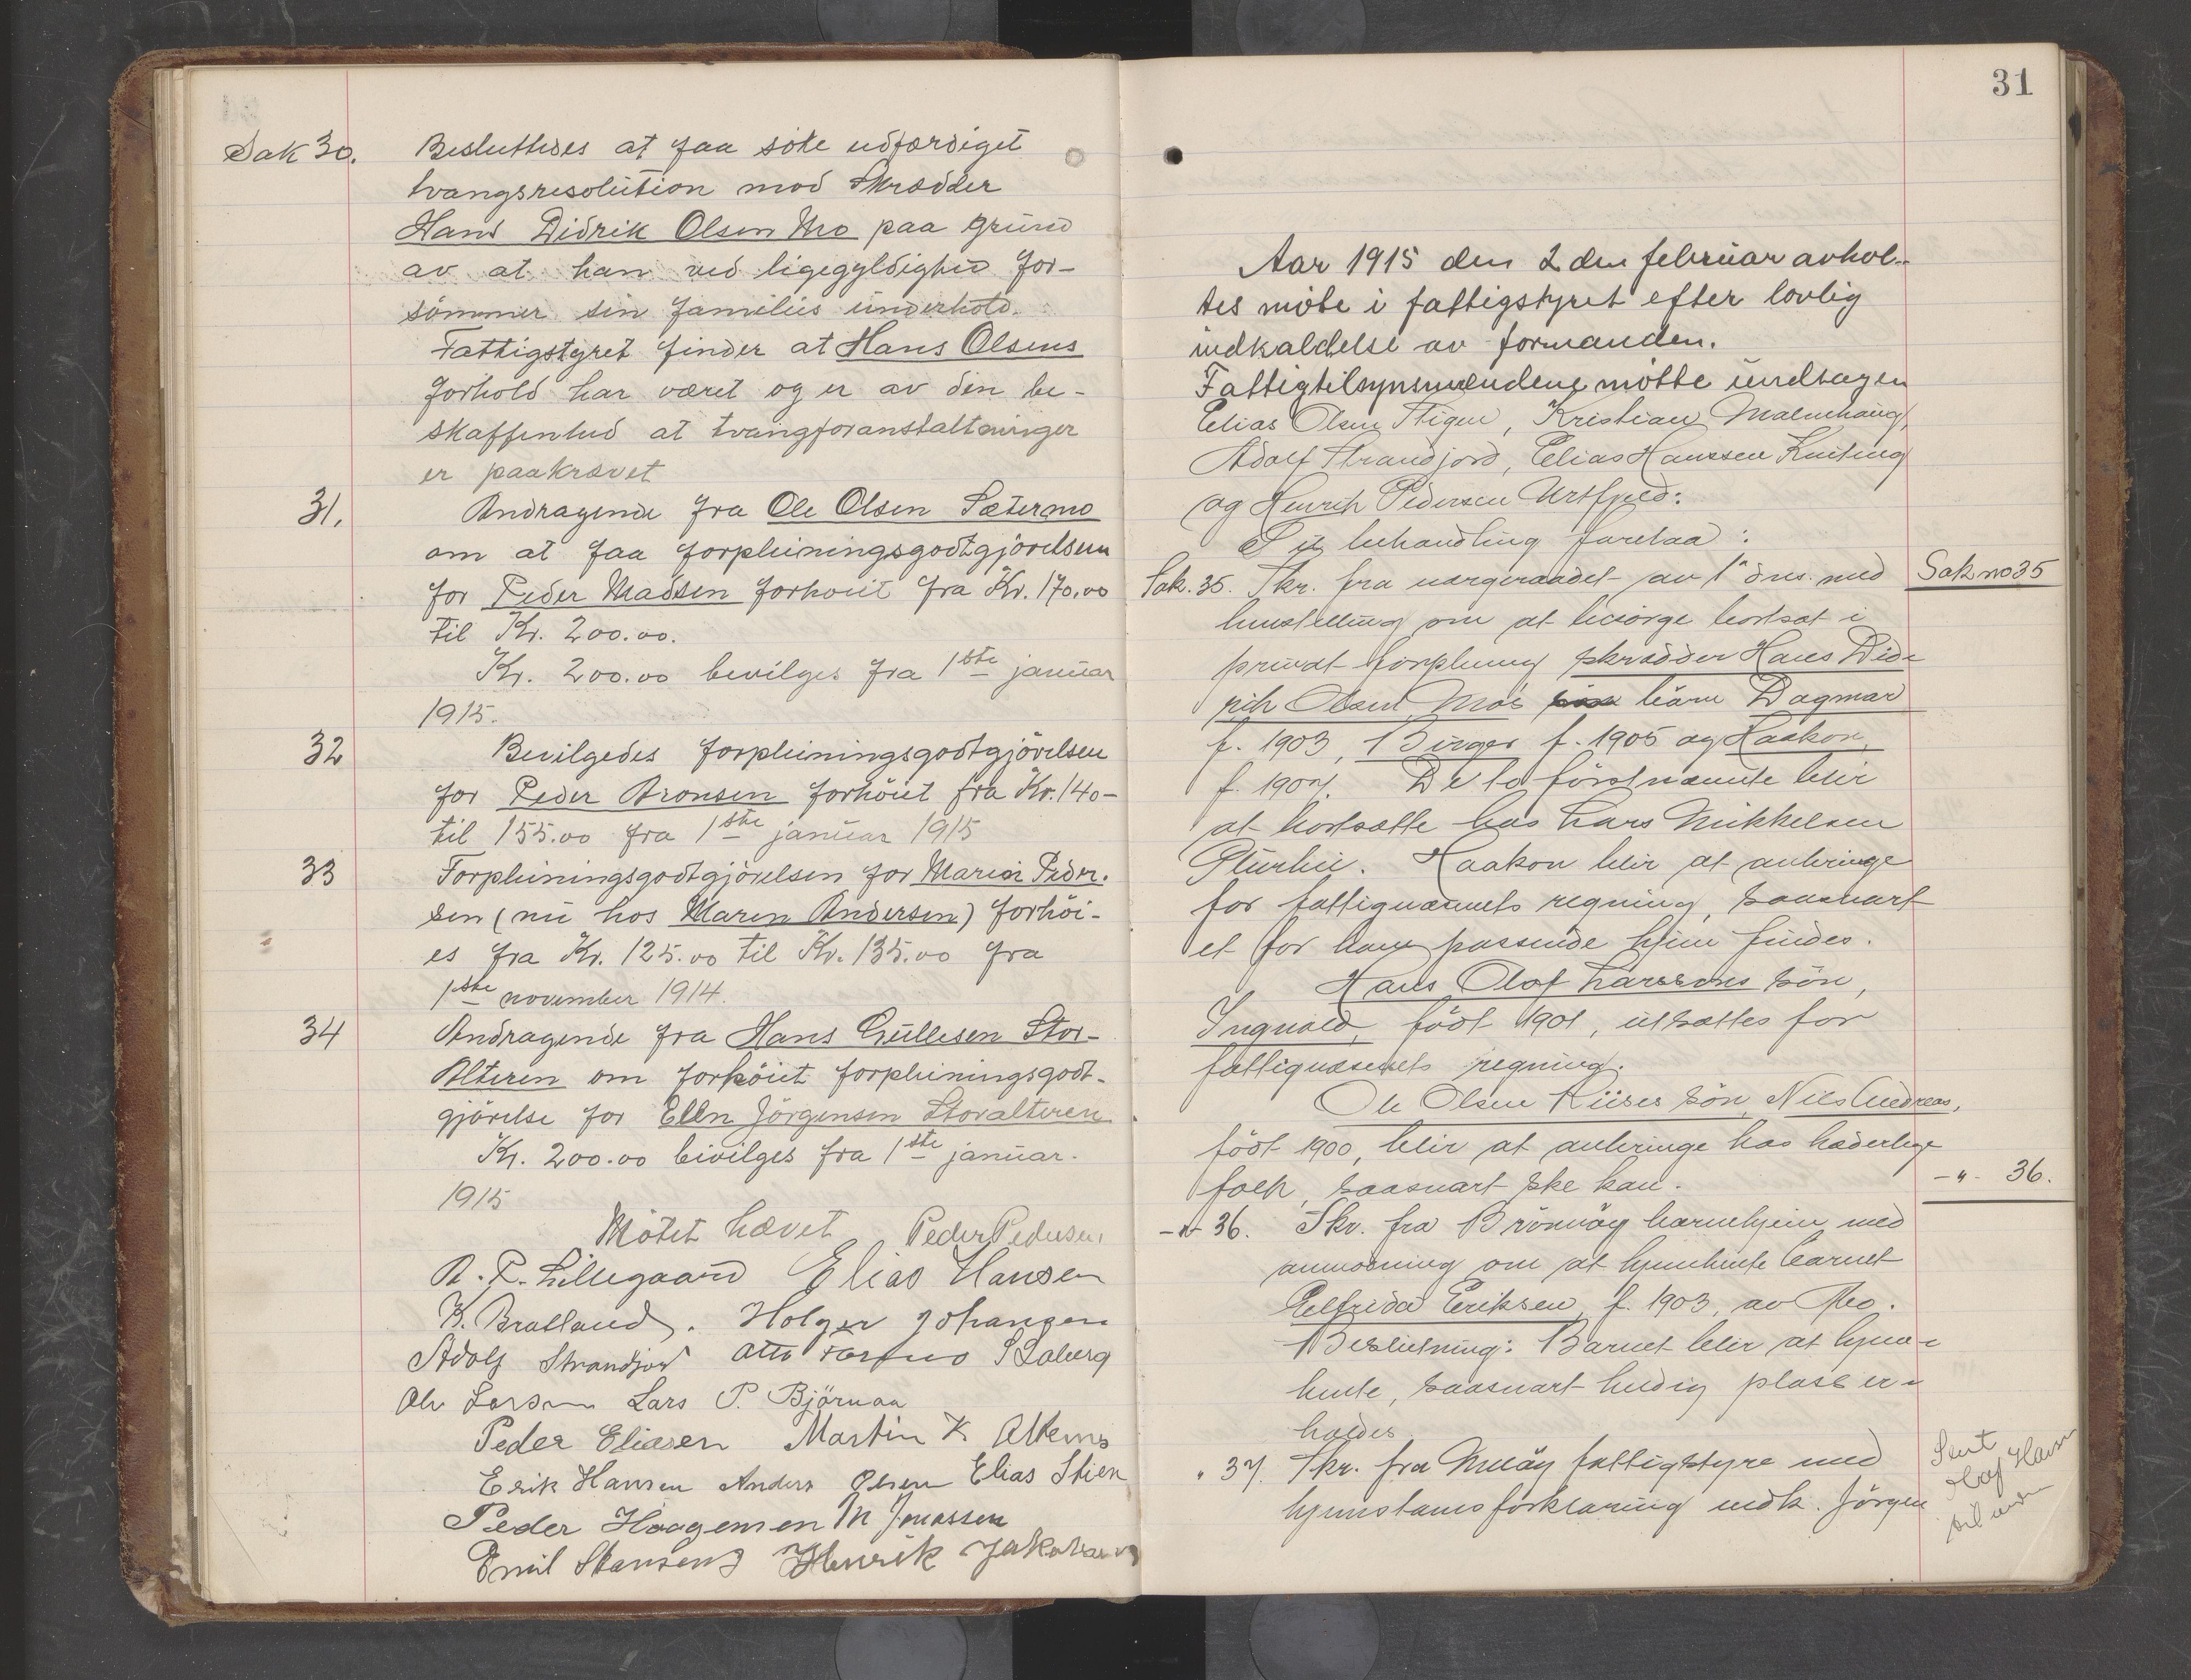 Sak 30. Besluttedes at faa søke udfærdiget
tvangsresolution mod Skrædder
Hans Didrik Olsen Mo paa grund
av at han ved ligegyldighed for-
sömmer sin families underhold.
Fattigstyret finder at Hans Olsens
forhold har været og er av den be-
skaffenhed at tvangforanstaltninger
er paakrævet
31. Andragende fra Ole Olsen Sætermo
om at faa forpleiningsgodtgjörelsen
for Peder Madsen forhöiet fra Kr. 170.00
til Kr. 200.00.
Kr. 200.00 bevilges fra 1ste januar
1915.
32 Bevilgedes forpleiningsgodtgjörelsen
for Peder Aronsen forhöiet fra Kr. 140-
til 155.00 fra 1ste januar 1915
33 Forpleiningsgodtgjörelsen for Maren Peder-
sen (nu hos Maren Andersen) forhöi-
es fra Kr. 125.00 til Kr. 135.00 fra
1ste november 1914.
34 Andragende fra Hans Gullesen Stor-
Alteren om forhöiet forpleiningsgodt-
gjörelse for Elen Jörgensen Storalteren
Kr. 200.00 bevilges fra 1ste januar.
1915
Mötet hævet Peder Pedersen
A. P. Lillegaard Elias Hansen
K. Bratland. Holger Johansen
Adolf Strandjord Otto
Ole Larsen Lars P. Björnaa
Peder Eliasen Martin K
Erik Hansen Anders Olsen Elias Stien
Peder Haagensen M Jonassen
Emil Henrik Jakobsen
31
Aar 1915 den 2den februar avhol-
tes möte i fattigstyret efter lovlig
indkaldelse av formanden.
Fattigtilsynsmændene mötte undtagen
Elias Olsen Stigen, Kristian Malmhaug,
Adolf Strandjord, Elias Hanssen
og Henrik Pedersen Urtfjeld:
Til behandling foretaa:
Sak. 35. Skr. fra værgeraadet av 1ds. med
Sak no 35
henstilling om at besörge bortsat i
privat forpleining skrædder Hans Did-
rik Olsen Mo's barn Dagmar
f. 1903, Birger f. 1905 og Haakon
f. 1907. De to förstnævnte blir
at bortsætte hos Lars Mikkelsen
Haakon blir at anbringe
for fattigvæsenets regning, saasnart
et for ham passende hjem findes.
Hans Olof Larssons sön,
Ingvald, födt 1901, utsættes for
fattigvæsenets regning.
Ole Olsen sön, Nils Andreas,
födt 1900, blir at anbringe hos hæderlige
folk, saasnart ske kan.
-"- 36.
-"- 36. Skr. fra Brönnöy barnehjem med
anmodning om at hjemhente barnet
Elfrida Eriksen, f. 1903, av Mo.
Beslutning: Barnet blir at hjem-
hente, saasnart ledig plass er-
holdes
" 37. Skr. fra fattigstyre med
hjemstamsforklaring indk. Jörgen
Sent
Olaf